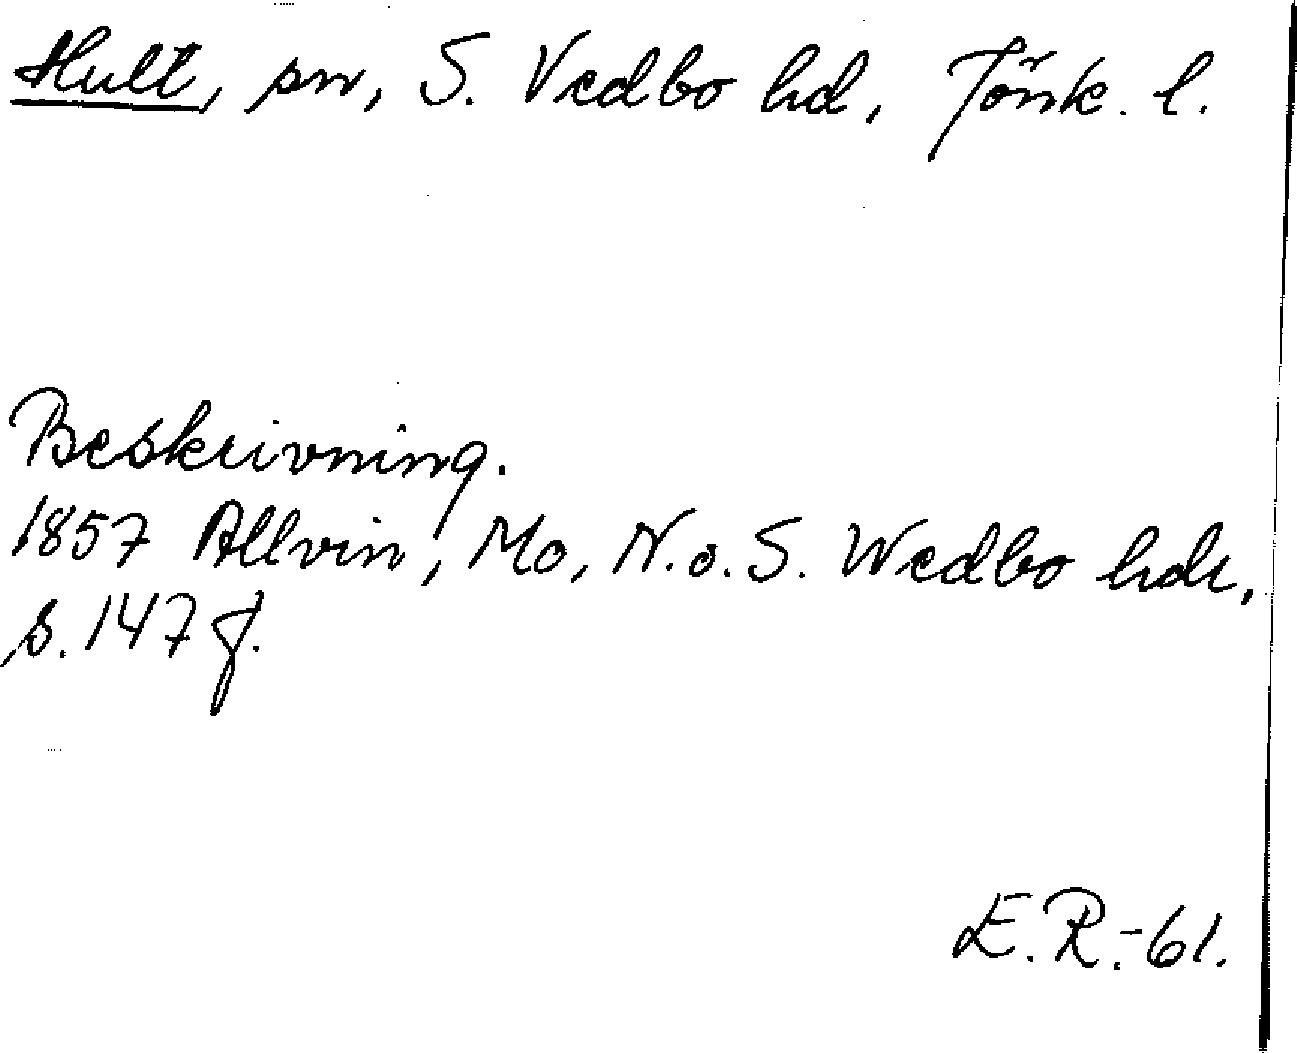 Hult, sn, S. Vedbo hd, Jönk. l.
Beskrivning.
1857 Allvin, Mo, N. o. S. Wedbo hdr,
s. 147 f.
E. R. -61.